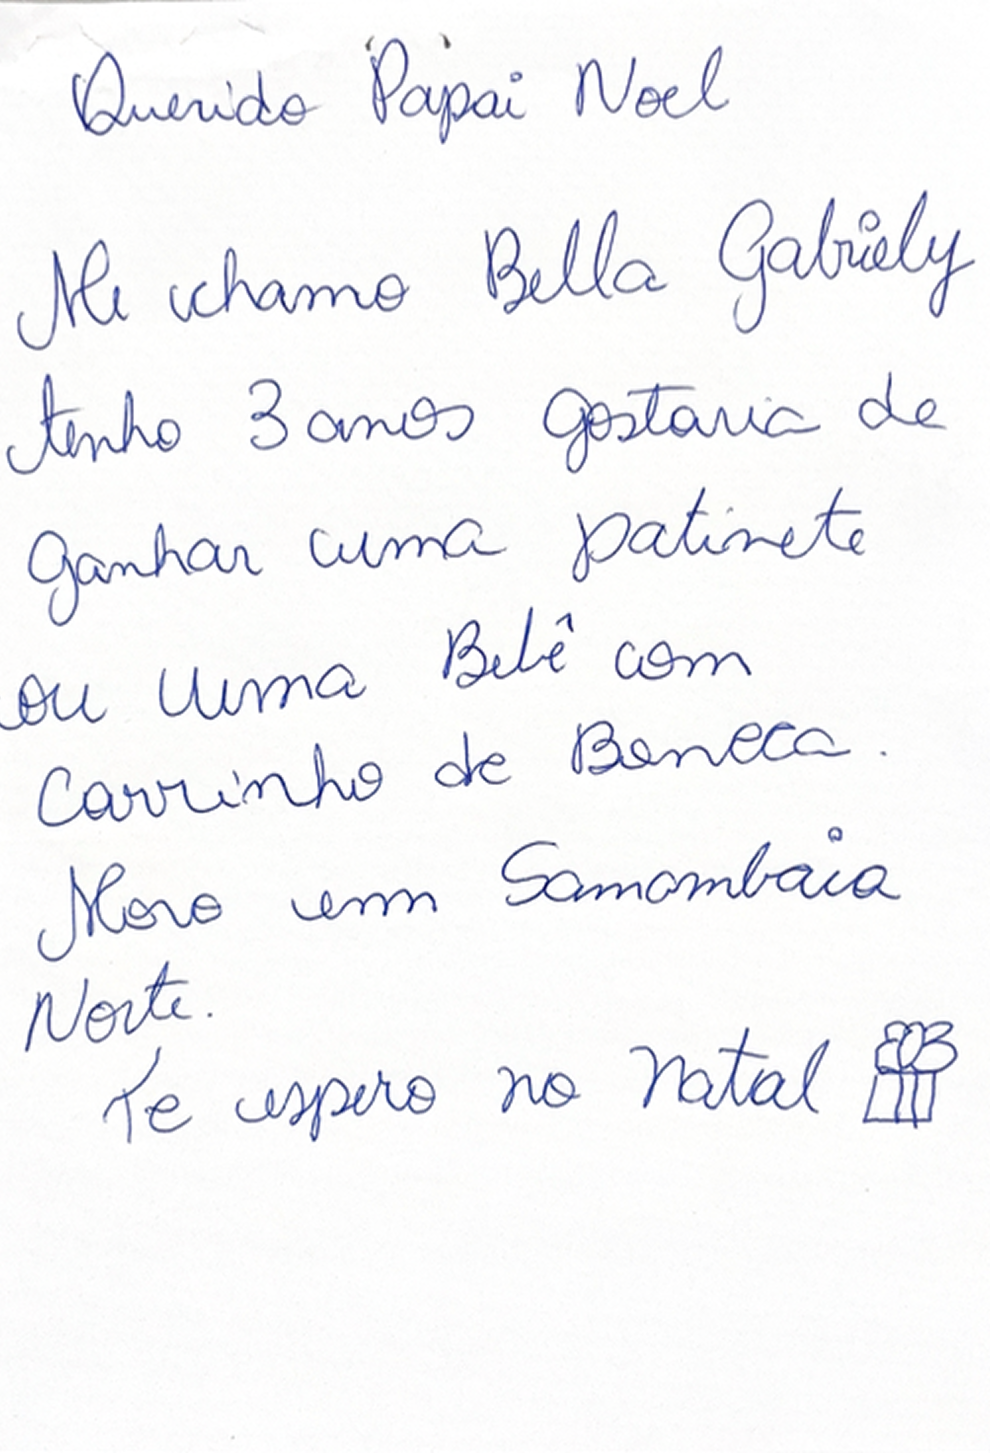 Querido Papai Noel
Me chamo Bella Gabriely
tenho 3 anos gostaria de
ganhar uma patinete
ou uma Bebê com
Carrinho de Boneca.
Moro em Samambaia
Norte.
Te espero no Natal